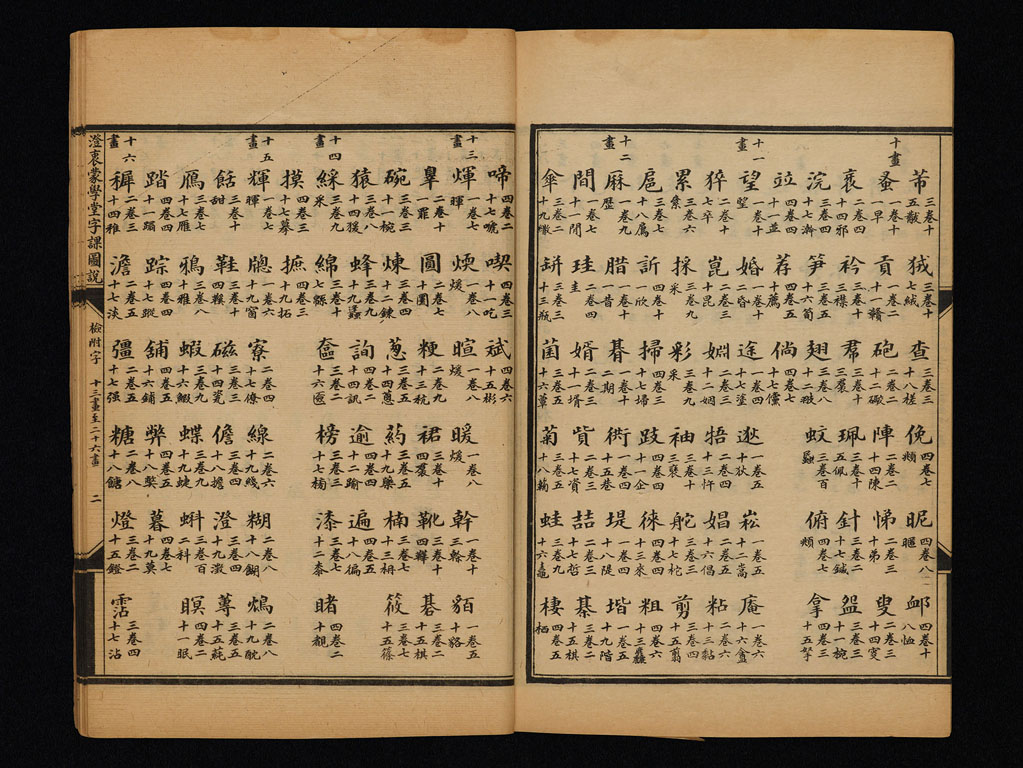 十畫
芾 三卷十 五黻 狨 三卷十 七絨 查 三卷三 十八槎 俛 四卷七 頫 昵 四卷八 暱 卹 四卷十 八恤
蚤 一卷十 一早 貢 二卷十 一贛 砲 二卷十 十二礮 陣 二卷十 十四陳 悌 二卷三 十弟 叟 二卷三 十四叜
衺 二卷四 十四邪 衿 三卷十 三襟 三卷十 珮 三卷十 五佩 針 三卷十 十七鍼 盌 三卷三 十一椀
浣 四卷三 十七澣 笋 三卷五 十六筍 翅 三卷八 十二翄 蚊 三卷百 蟁 俯 四卷七 頫 拿 四卷三 十五拏
竝 四卷四 十一並 荐 四卷五 十薦 倘 四卷七 十七儻
十一畫
望 一卷十 朢 婚 二卷二 昏 途 一卷四 十七塗 逖 一卷五 十狄 崧 一卷五 十二嵩 庵 一卷六 六盦
猝 四卷二 七卒 崑 一卷三 十昆 婣 二卷二 十二姻 牾 四卷二 十三忤 娼 二卷六 十六倡 粘 二卷六 十三黏
累 三卷六 絫 採 三卷九 采 彩 三卷九 采 袖 三卷十 三褎 舵 三卷七 十七柁 剪 三卷四 十五翦
扈 二卷七 十八 訢 四卷十 一欣 掃 四卷三 十七埽 跂 四卷四 十一企 徠 四卷四 十三來 粗 四卷六 十三麤
十二畫
麻 一卷九 歷 腊 一卷十 一昔 朞 一卷十 二期 衖 一卷四 十五巷 堤 一卷四 十八隄 堦 一卷四 十九階
間 一卷七 十一閒 珪 二卷四 圭 婿 二卷三 十一壻 貲 二卷五 十七資 喆 二卷四 十七哲 棊 三卷二 十五棋
傘 三卷二 十九繖 缾 三卷三 十三瓶 菌 三卷五 十六蕈 菊 三卷五 十八蘜 蛙 三卷九 十六鼃 棲 四卷五 栖
十三畫
啼 四卷二 十七嗁 喫 四卷三 十一吃 斌 四卷六 十五彬
煇 一卷七 暉 煗 一卷八 煖 暄 一卷八 煖 暖 一卷八 煖 幹 一卷十 三榦 貊 一卷五 十貉
辠 二卷十 一罪 圓 二卷七 十圜 粳 二卷七 十三秔 裙 三卷十 四 靴 三卷十 四鞾 碁 三卷二 十五棋
碗 三卷三 十一椀 煉 三卷四 十二鍊 蔥 三卷五 十四蔥 葯 三卷五 十九藥 楠 三卷七 十三枏 筱 三卷七 十五篠
猿 三卷八 十四猨 蜂 三卷九 十九蠭 詢 四卷二 十四訊 逾 四卷四 十二踰 遍 四卷五 十八徧
十四畫
綵 三卷九 采 綿 三卷十 七緜 奩 三卷二 十六匳 榜 三卷七 十七 漆 三卷七 十二桼 睹 四卷二 十覩
摸 四卷三 十七摹 摭 四卷三 十九拓
十五畫
輝 一卷七 暉 牕 一卷六 十九窗 寮 二卷四 十七僚 線 二卷六 十九綫 糊 二卷八 十八餬 鴆 二卷八 十九酖
餂 三卷十 甜 鞋 三卷十 四鞵 磁 三卷三 十四瓷 儋 四卷四 十八擔 澄 三卷四 十九澂 蓴 三卷五 十五蒓
鴈 三卷七 十七雁 鴉 三卷八 十雅 蝦 三卷九 十六鰕 蝶 三卷九 十九蜨 蝌 三卷百 二科 瞑 四卷二 十一眠
踏 四卷四 十一蹋 踪 四卷四 十七蹤 舖 四卷五 十六鋪 弊 四卷五 十八獘 暮 四卷二 十九莫
十六畫
穉 二卷三 十四稚 澹 二卷八 十七淡 彊 二卷五 十七强 糖 二卷八 十八餹 燈 三卷二 十五鐙 霑 三卷四 十七沾
澄衷蒙學堂字課圖說
檢附字 十三畫至二十六畫 二